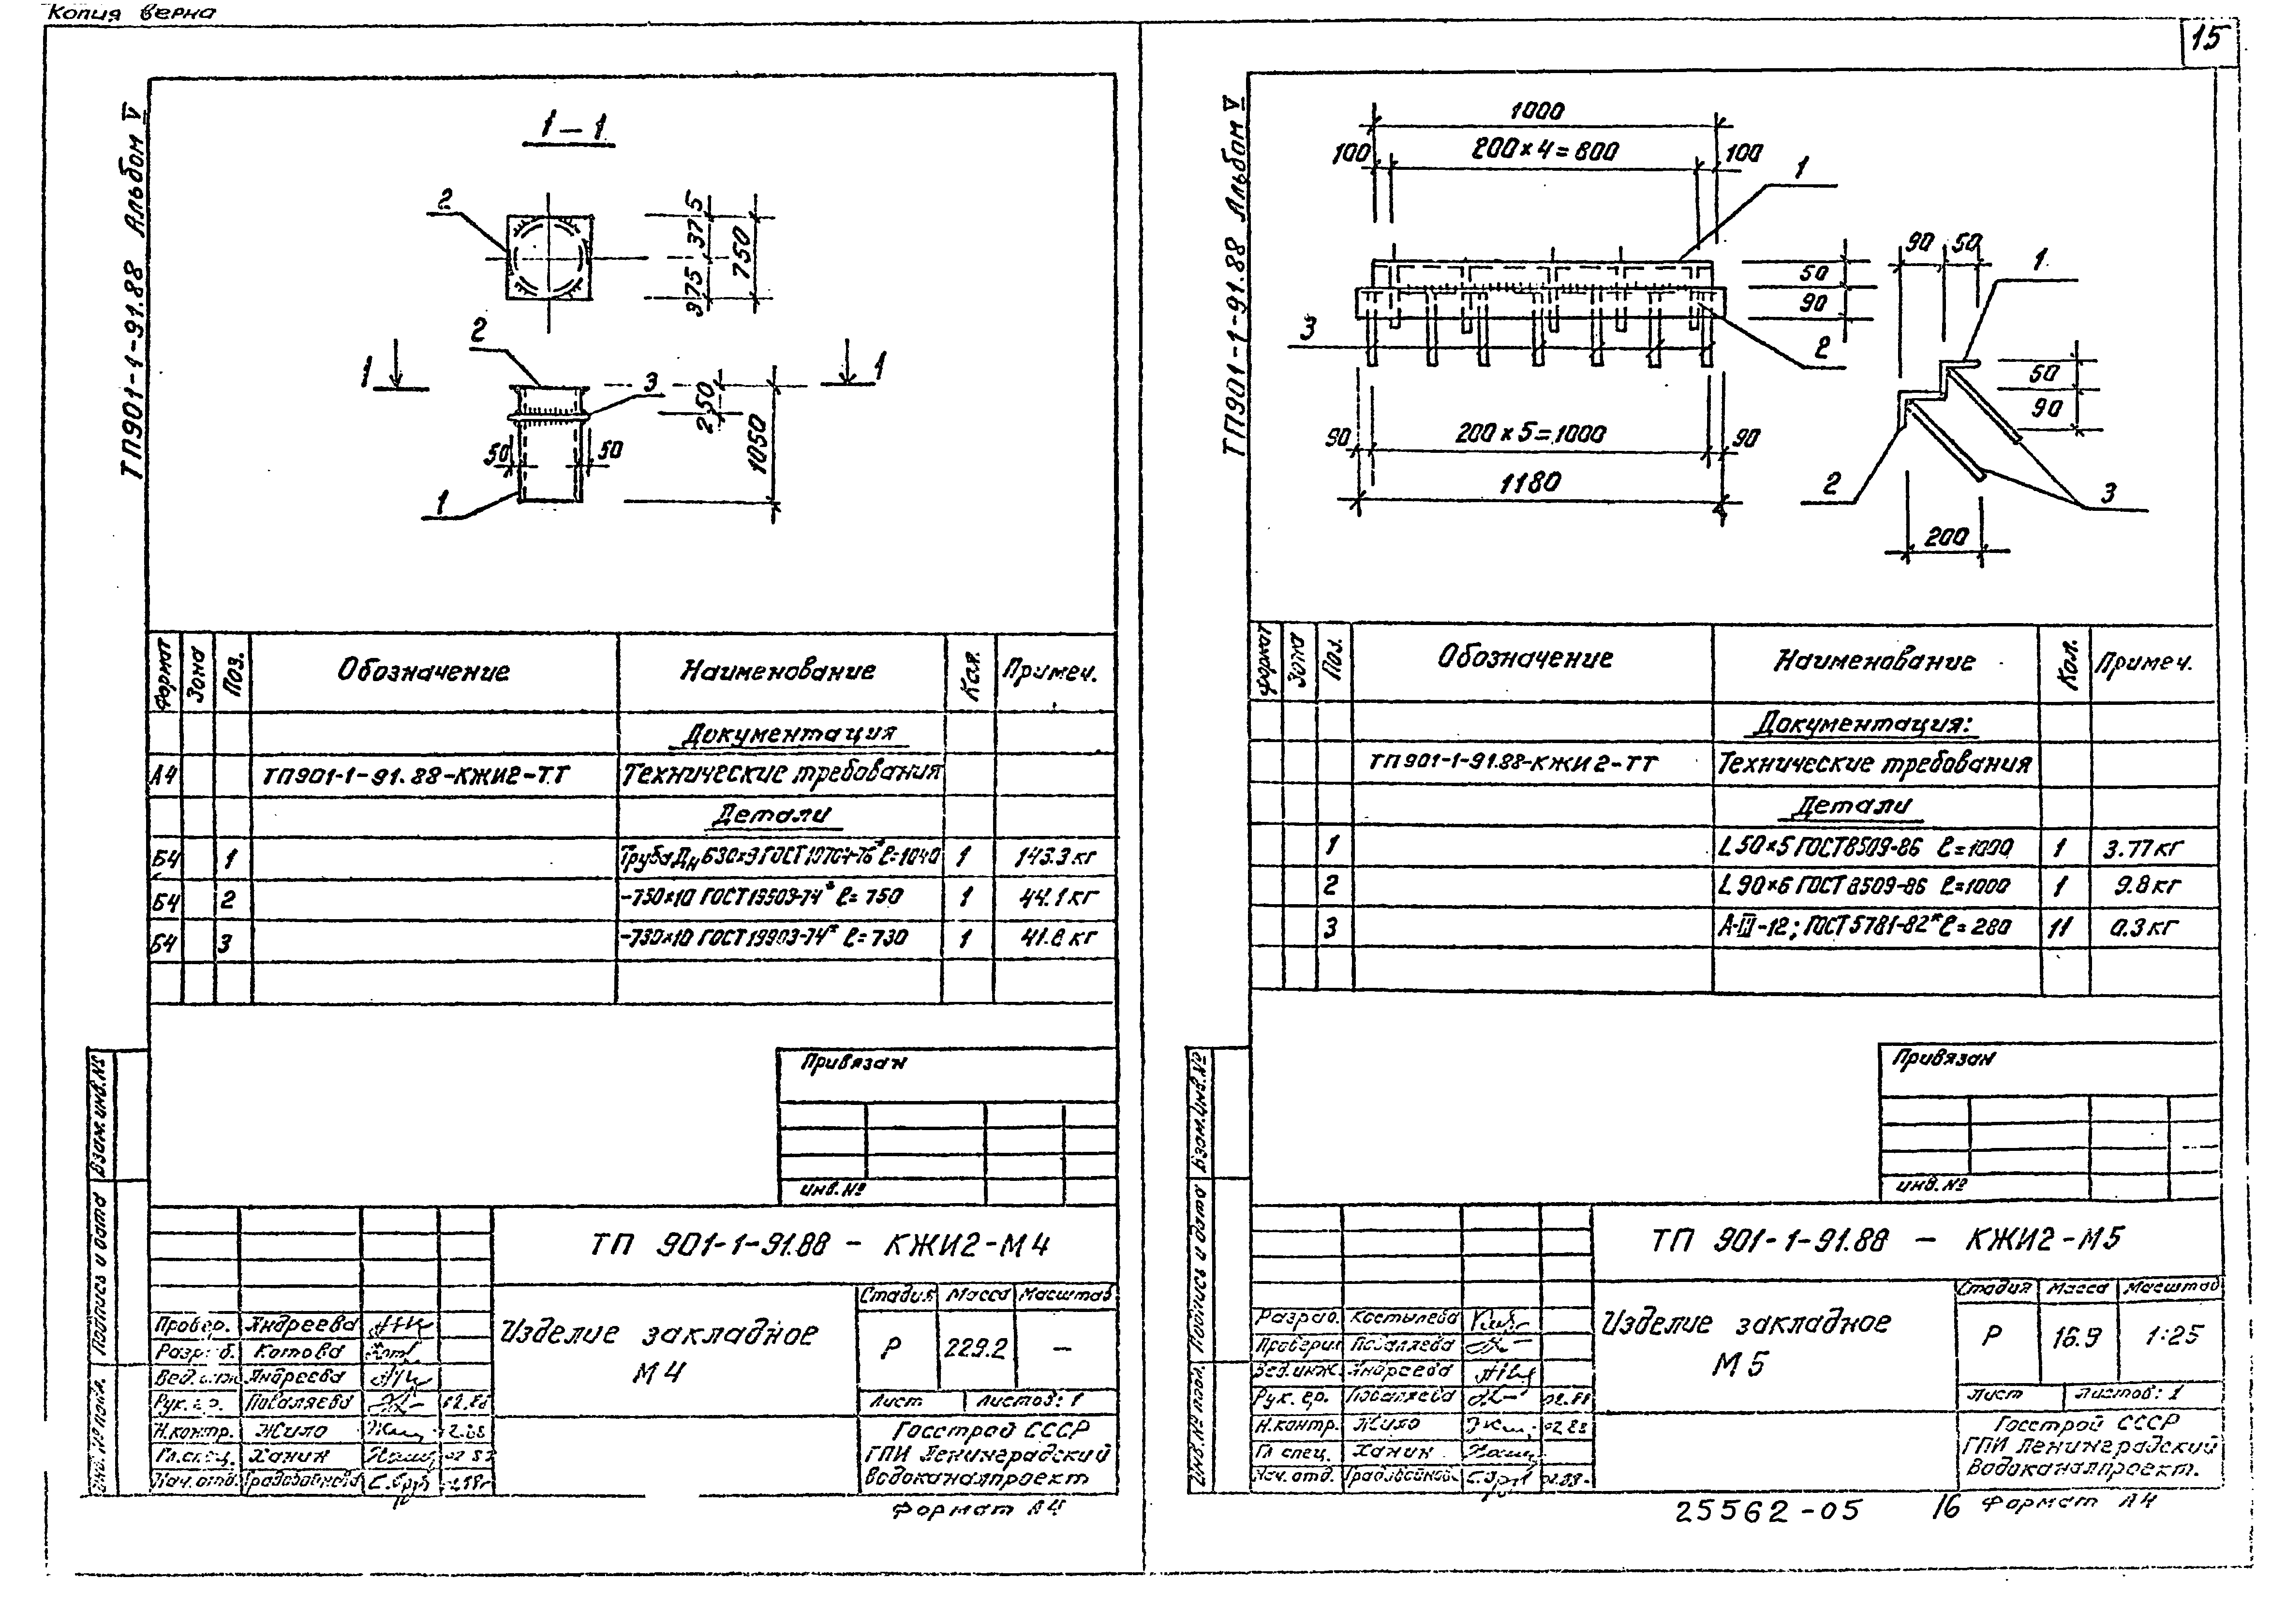 Копия верна
15
ТП901-1-91.88 Альбом V
1-1
2
37 5
375
750
2
1
3
1
250
1050
50
50
1
Формат Зона Поз. Обозначение Наименование Кол. Примеч.
Документация
А4 ТП901-1-91.88-КЖИ2-ТТ Технические требования
Детали
Б4 1 Труба Дн 630×9 ГОСТ 10704-76* ℓ=1040 1 143.3 кг
Б4 2 -750×10 ГОСТ 19903-74* ℓ= 750 1 44.1 кг
Б4 3 -730×10 ГОСТ 19903-74* ℓ= 730 1 41.8 кг
Привязан
инв.№
Взам.инв.№
Подпись и дата
Инв.№ подл.
ТП 901-1-91.88 - КЖИ2-М4
Стадия Масса Масштаб
Изделие закладное
М4
Р 229.2 —
Лист Листов: 1
Госстрой СССР
ГПИ Ленинградский
Водоканалпроект
Провер. Андреева
Разраб. Котова
Вед.инж. Андреева
Рук.гр. Поваляева 02.88
Н.контр. Жило 02.88
Гл.спец. Ханин 02 88
Нач.отд.
Формат А4
ТП901-1-91.88 Альбом V
1000
100 200×4=800 100
1
50
90
3
2
90 200×5=1000 90
1180
90 50
1
50
90
2
3
200
Формат Зона Поз. Обозначение Наименование Кол. Примеч.
Документация:
ТП901-1-91.88-КЖИ2-ТТ Технические требования
Детали
1 L 50×5 ГОСТ 8509-86 ℓ=1000 1 3.77кг
2 L 90×6 ГОСТ 8509-86 ℓ=1000 1 9.8кг
3 А-III-12; ГОСТ 5781-82* ℓ= 280 11 0.3кг
Привязан
инв.№
Взам.инв.№
Подпись и дата
Инв.№ подл.
ТП 901-1-91.88 - КЖИ2-М5
Стадия Масса Масштаб
Изделие закладное
М5
Р 16.9 1:25
Лист Листов: 1
Госстрой СССР
ГПИ Ленинградский
Водоканалпроект.
Разраб. Костылева
Проверил Поваляева
Вед.инж. Андреева
Рук. гр. Поваляева 02.88
Н.контр. Жило 02.88
Гл спец. Ханин
Нач.отд. 02.88
25562-05 16 Формат А4